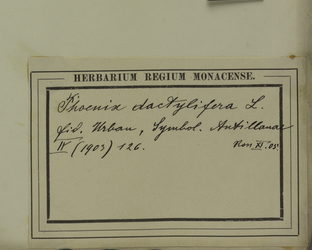 HERBARIUM REGIUM MONACENSE.
Phoenix dactylifera L.
fid. Urban, Symbol. Antillanae
IV (1903) 126.
XI. 05.